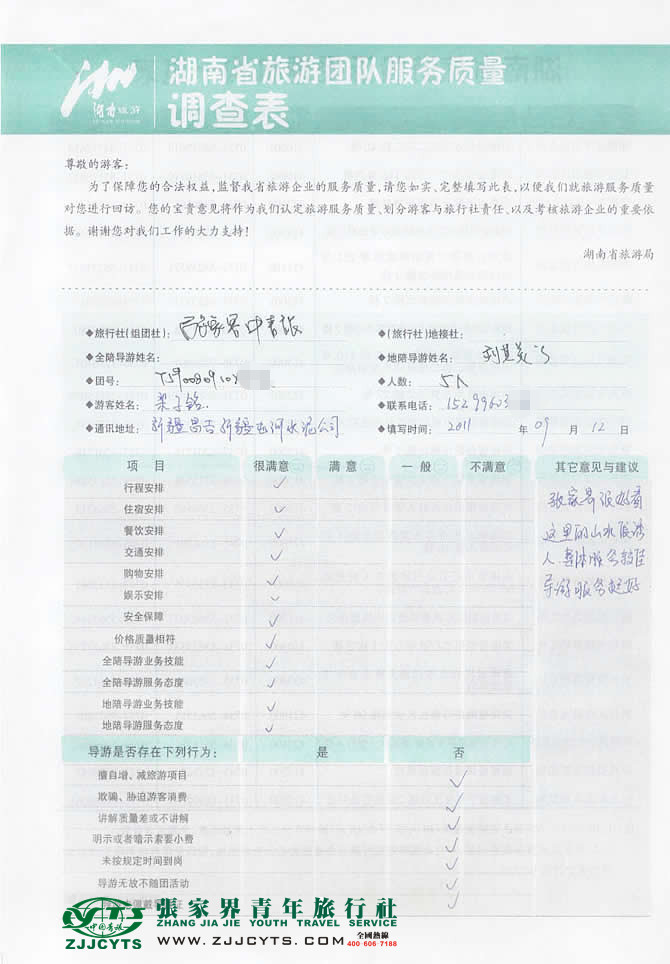 湖南旅游
湖南省旅游团队服务质量
调查表
尊敬的游客：
为了保障您的合法权益,监督我省旅游企业的服务质量,请您如实、完整填写此表,以便我们就旅游服务质量
对您进行回访。您的宝贵意见将作为我们认定旅游服务质量、划分游客与旅行社责任、以及考核旅游企业的重要依
据。谢谢您对我们工作的大力支持!
湖南省旅游局
◆旅行社(组团社)： 张家界中青旅 ◆(旅行社)地接社：
◆全陪导游姓名： ◆地陪导游姓名：
◆团号： ◆人数： 5人
◆游客姓名： ◆联系电话： 15299603
◆通讯地址： 新疆昌吉新疆屯河水泥公司 ◆填写时间： 2011 年 09 月 12 日
项 目 很满意 满意 一般 不满意 其它意见与建议
行程安排 ✓
住宿安排 ✓
餐饮安排 ✓
交通安排 ✓
购物安排 ✓
娱示安排 ✓
安全保障 ✓
价格质量相符 ✓
全陪导游业务技能 ✓
全陪导游服务态度 ✓
地陪导游业务技能 ✓
地陪导游服务态度 ✓
张家界很好看
这里的山水很诱
人.整体服务较佳
导游服务挺好
导游是否存在下列行为： 是 否
擅自增、减旅游项目 ✓
欺骗、胁迫游客消费 ✓
讲解质量差或不讲解 ✓
明示或者暗示索要小费 ✓
未按规定时间到岗 ✓
导游无故不随团活动 ✓
佩戴 ✓
CYTS
中国青旅
ZJJCYTS
張家界青年旅行社
ZHANG JIA JIE YOUTH TRAVEL SERVICE
WWW.ZJJCYTS.COM 全國熱線
400 606 7188